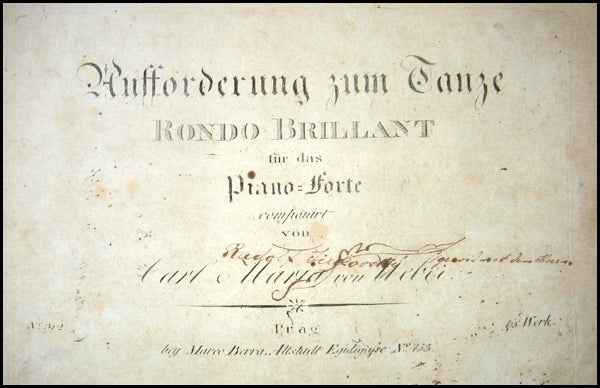 Aufforderung zum Tanze
RONDO BRILLANT
für das
Piano=Forte
componirt
von
Carl Maria von Weber
Prag
bey Marco Berra, Altstadt
No 312
65 Werk.